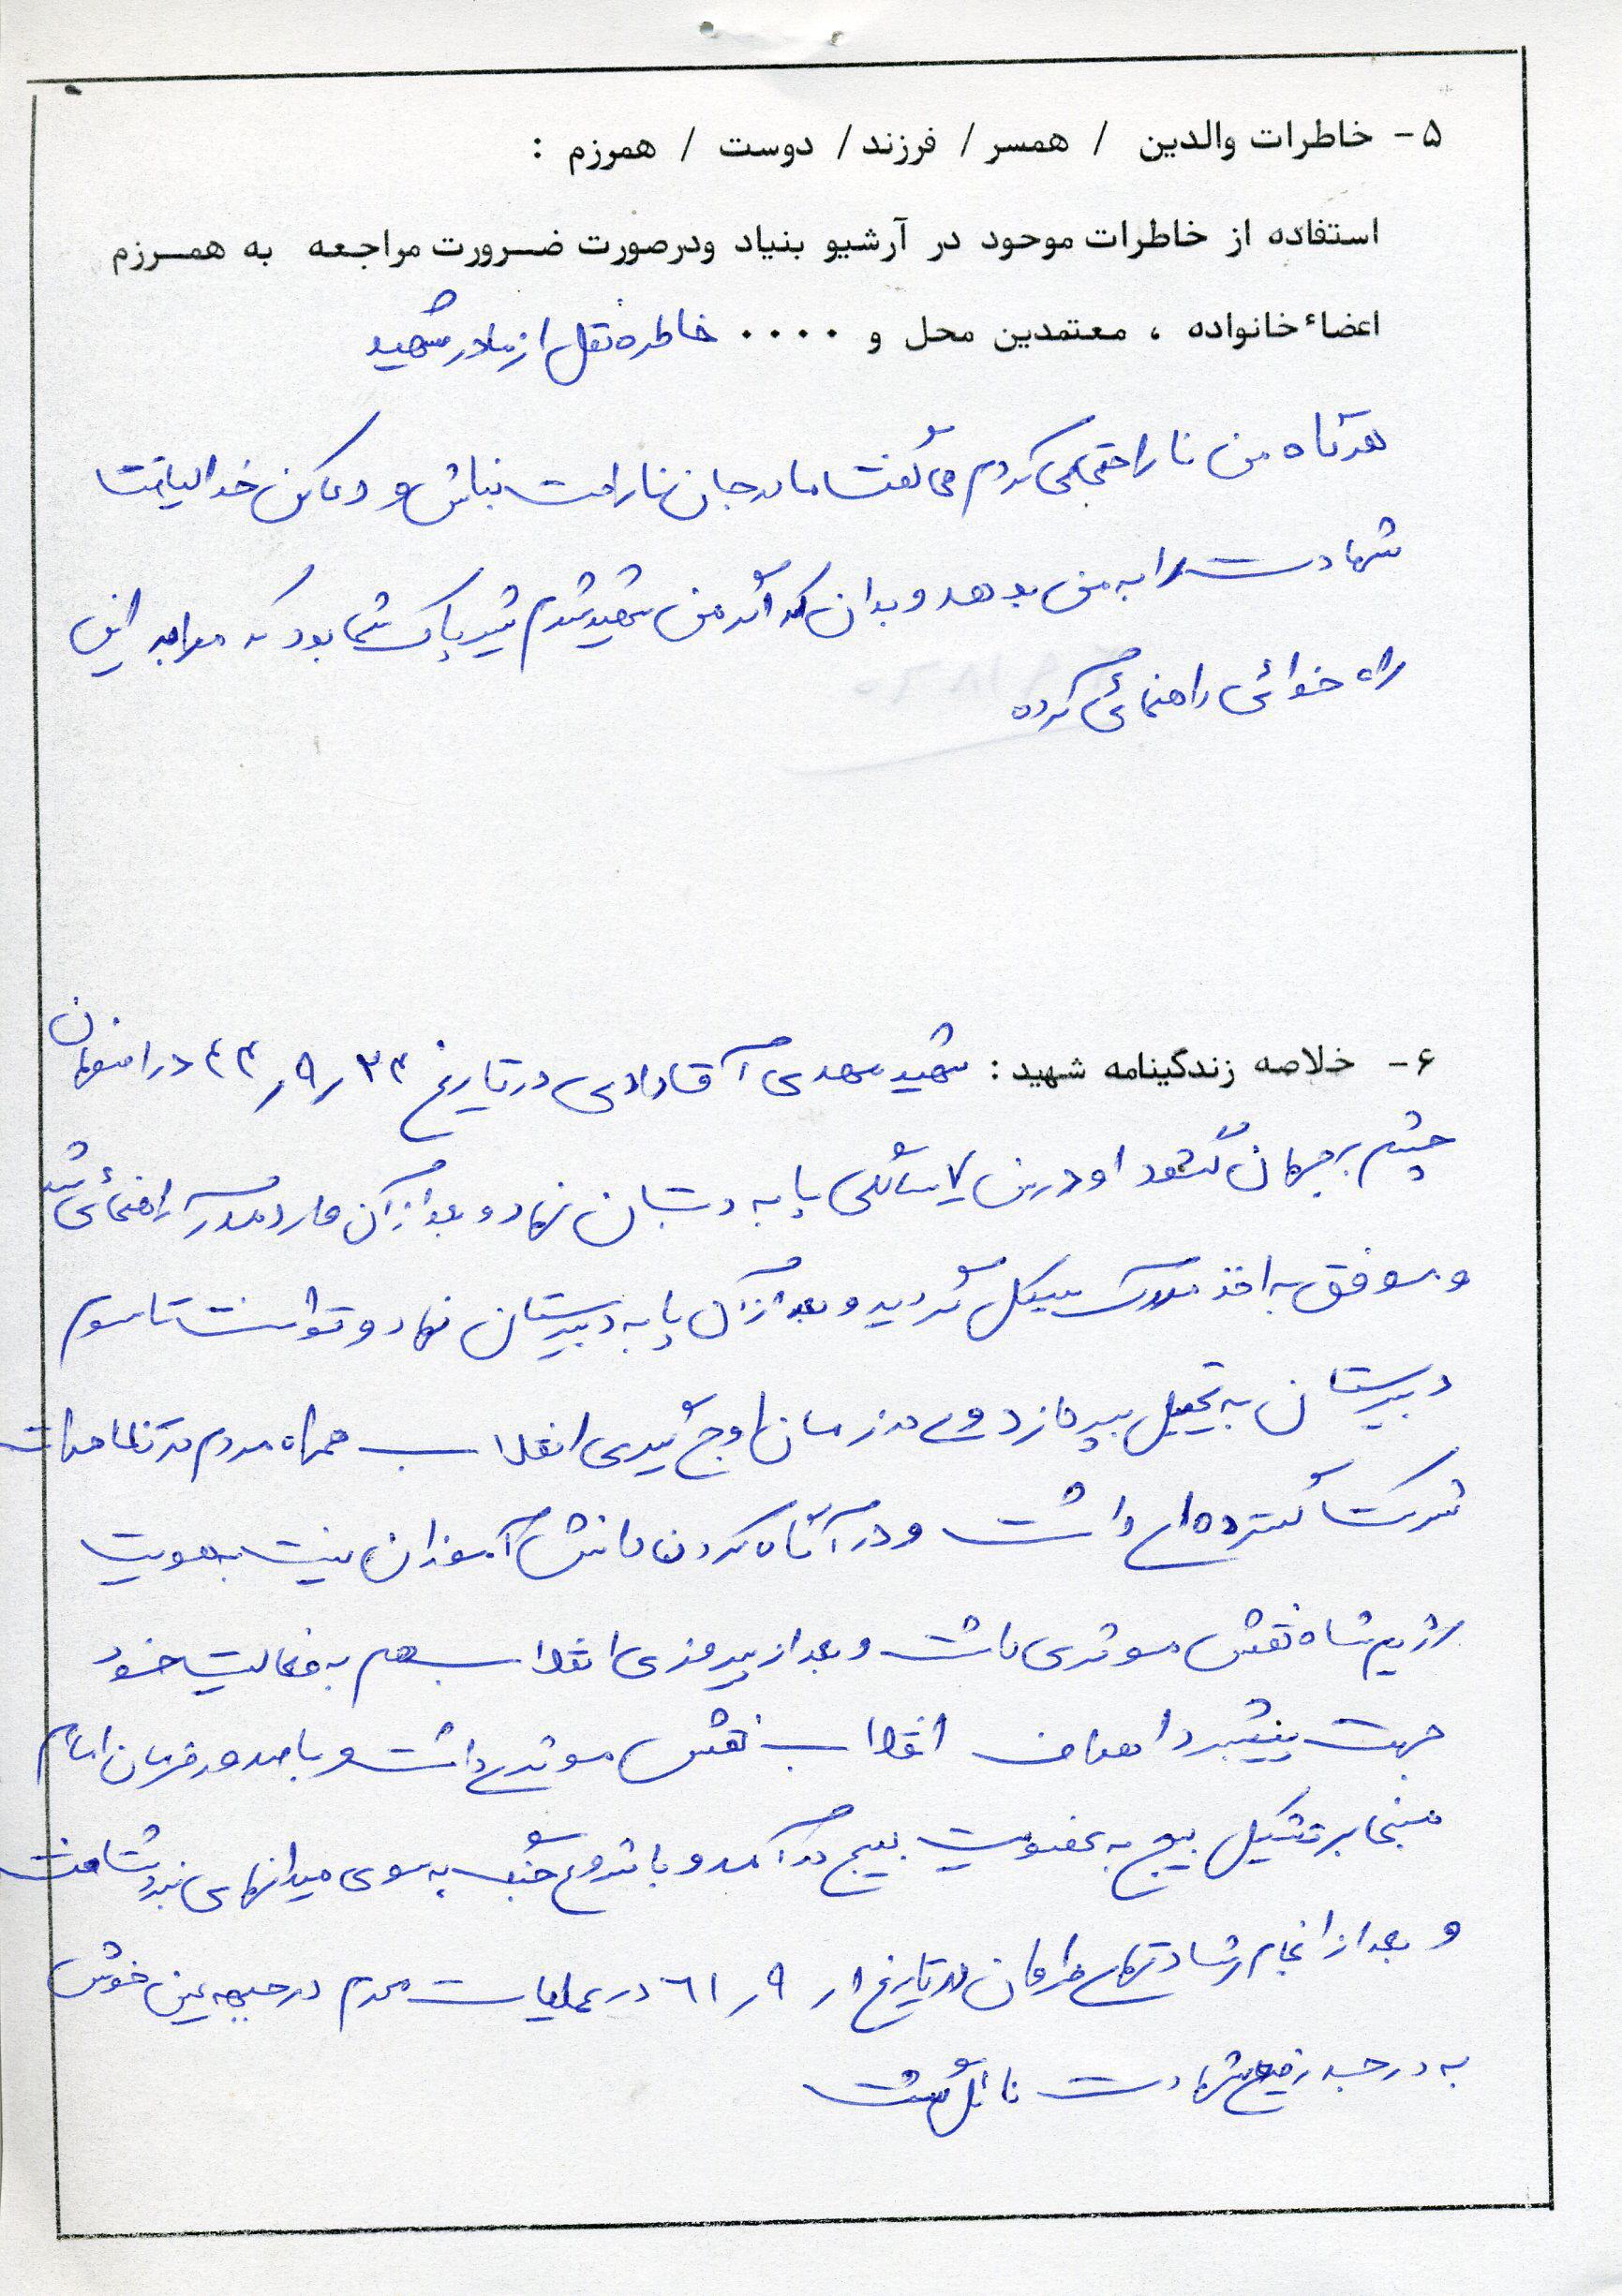 ۵- خاطرات والدین / همسر / فرزند / دوست / همرزم :
استفاده از خاطرات موحود در آرشیو بنیاد ودرصورت ضرورت مراجعه به همرزم
اعضاء خانواده ، معتمدین محل و ۰۰۰۰ خاطره نقل از مادر شهید
هرگاه من ناراحتی می کردم می گفت مادر جان ناراحت نباش و دعا کن خدا لیاقت
شهادت را به من بدهد و بدان که اگر من شهید شدم شیر پاک شما بود که مرا به این
راه خدائی راهنمائی کرده
۶- خلاصه زندگینامه شهید : شهید مهدی آقادادی در تاریخ ۴۳٫۹٫۲۳ در اصفهان
چشم بر جهان گشود او در سن ۷ سالگی پا به دبستان نهاد و بعد از آن وارد مدرسه راهنمائی شد
و موفق به اخذ مدرک سیکل گردید و بعد از آن پا به دبیرستان نهاد و توانست تا سوم
دبیرستان به تحصیل بپردازد وی در زمان اوج گیری انقلاب همراه مردم در تظاهرات
شرکت گسترده ای داشت و در آگاه کردن دانش آموزان نسبت به هویت
رژیم شاه نقش موثری داشت و بعد از پیروزی انقلاب هم به فعالیت خود
جهت پیشبرد اهداف انقلاب نقش موثری داشت و با صدور فرمان امام
مبنی بر تشکیل بسیج به عضویت بسیج در آمد و با شروع جنگ به سوی میدانهای نبرد شتافت
و بعد از انجام رشادتهای فراوان در تاریخ ۶۱٫۹٫۱ در عملیات محرم در جبهه عین خوش
به درجه رفیع شهادت نائل گشت